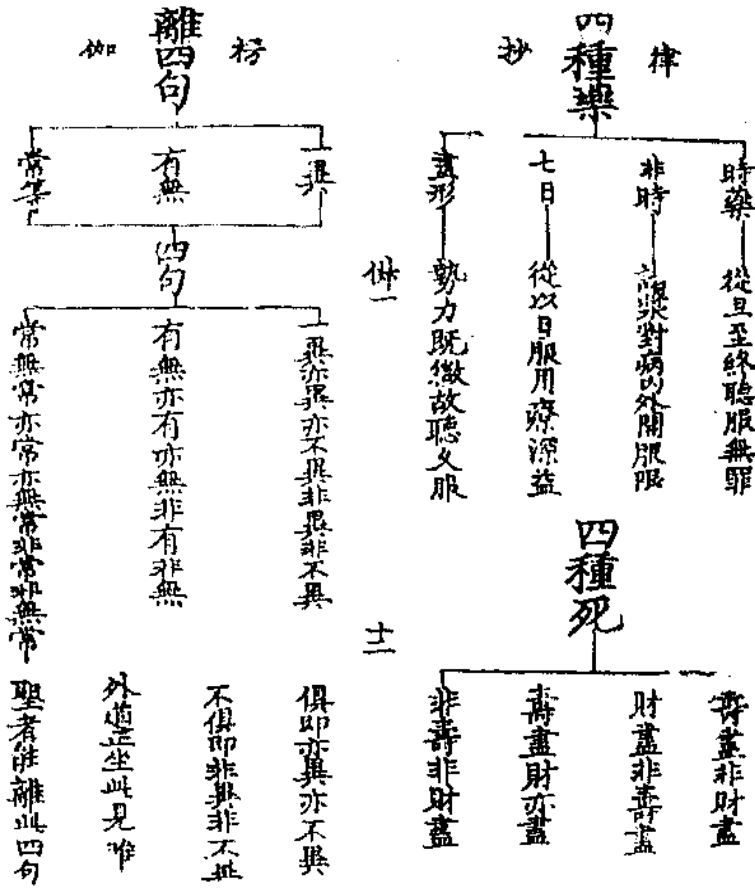 律
四種藥
抄
時藥
從旦至終聽服無罪
非時
諸漿對病以外開服限
七日
從以日服用療深益
盡形
勢力既微故聽久服
四種死
壽盡非財盡
財盡非壽盡
壽盡財亦盡
非壽非財盡
十二
楞
離四句
伽
一異
有無
常等
四句
一異亦異亦不異非異非不異
有無亦有亦無非有非無
常無常亦常亦無常非常非無常
俱即亦異亦不異
不俱即非異非不異
外道正坐此見唯
聖者能離此四句